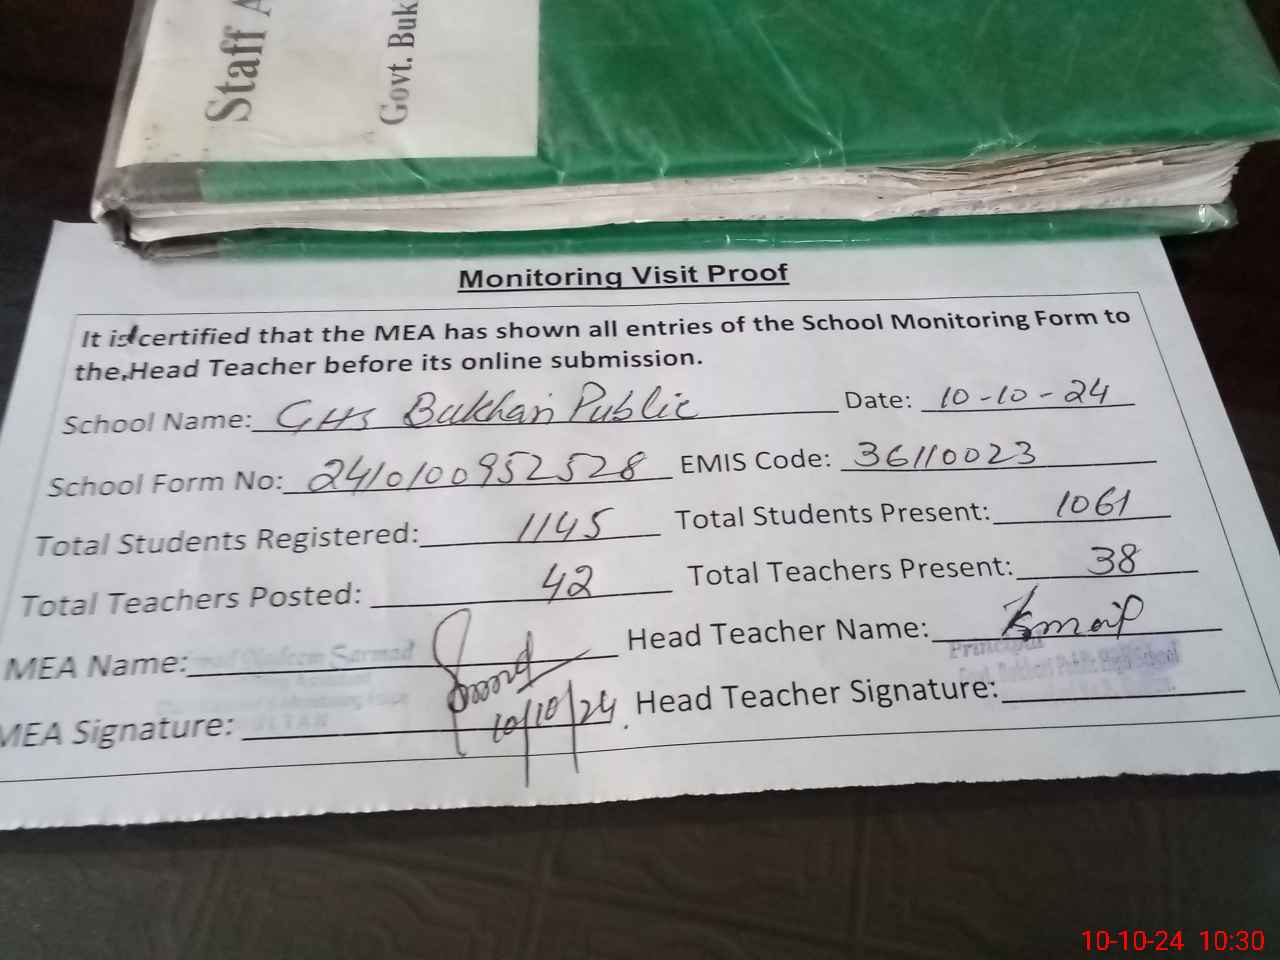 Staff A
Govt. Buk
Monitoring Visit Proof
It is certified that the MEA has shown all entries of the School Monitoring Form to
the Head Teacher before its online submission.
School Name: GHS Bukhari Public Date: 10-10-24
School Form No: 2410100952528 EMIS Code: 36110023
Total Students Registered: 1145 Total Students Present: 1061
Total Teachers Posted: 42 Total Teachers Present: 38
MEA Name: Sarmad Head Teacher Name:
Principal
Govt. Bukhari Public High School
MEA Signature: 10/10/24. Head Teacher Signature:
10-10-24 10:30